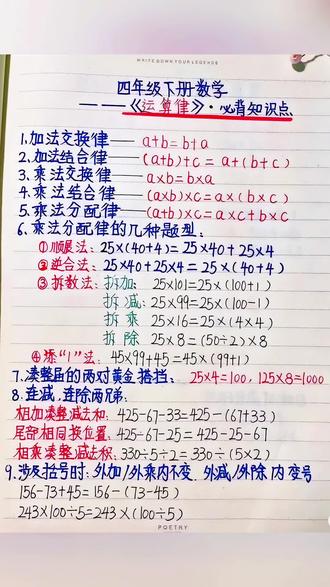 WRITE DOWN YOUR LEGENDS
四年级下册数学
——《运算律》·必背知识点
1.加法交换律—— a+b=b+a
2.加法结合律—— (a+b)+c=a+(b+c)
3.乘法交换律—— a×b=b×a
4.乘法结合律—— (a×b)×c=a×(b×c)
5.乘法分配律—— (a+b)×c=a×c+b×c
6.乘法分配律的几种题型:
①顺展法: 25×(40+4)=25×40+25×4
②逆合法: 25×40+25×4=25×(40+4)
③拆数法: 拆加: 25×101=25×(100+1)
拆减: 25×99=25×(100-1)
拆乘 25×16=25×(4×4)
拆除 25×8=(50÷2)×8
④添“1”法: 45×99+45=45×(99+1)
7.凑整百的两对黄金搭挡: 25×4=100, 125×8=1000
8.连减,连除两兄弟:
相加凑整减法和: 425-67-33=425-(67+33)
尾部相同换位置: 425-67-25=425-25-67
相乘凑整减法积: 330÷5÷2=330÷(5×2)
9.涉及括号时: 外加/外乘内不变 外减/外除内变号
156-73+45=156-(73-45)
243×100÷5=243×(100÷5)
POETRY